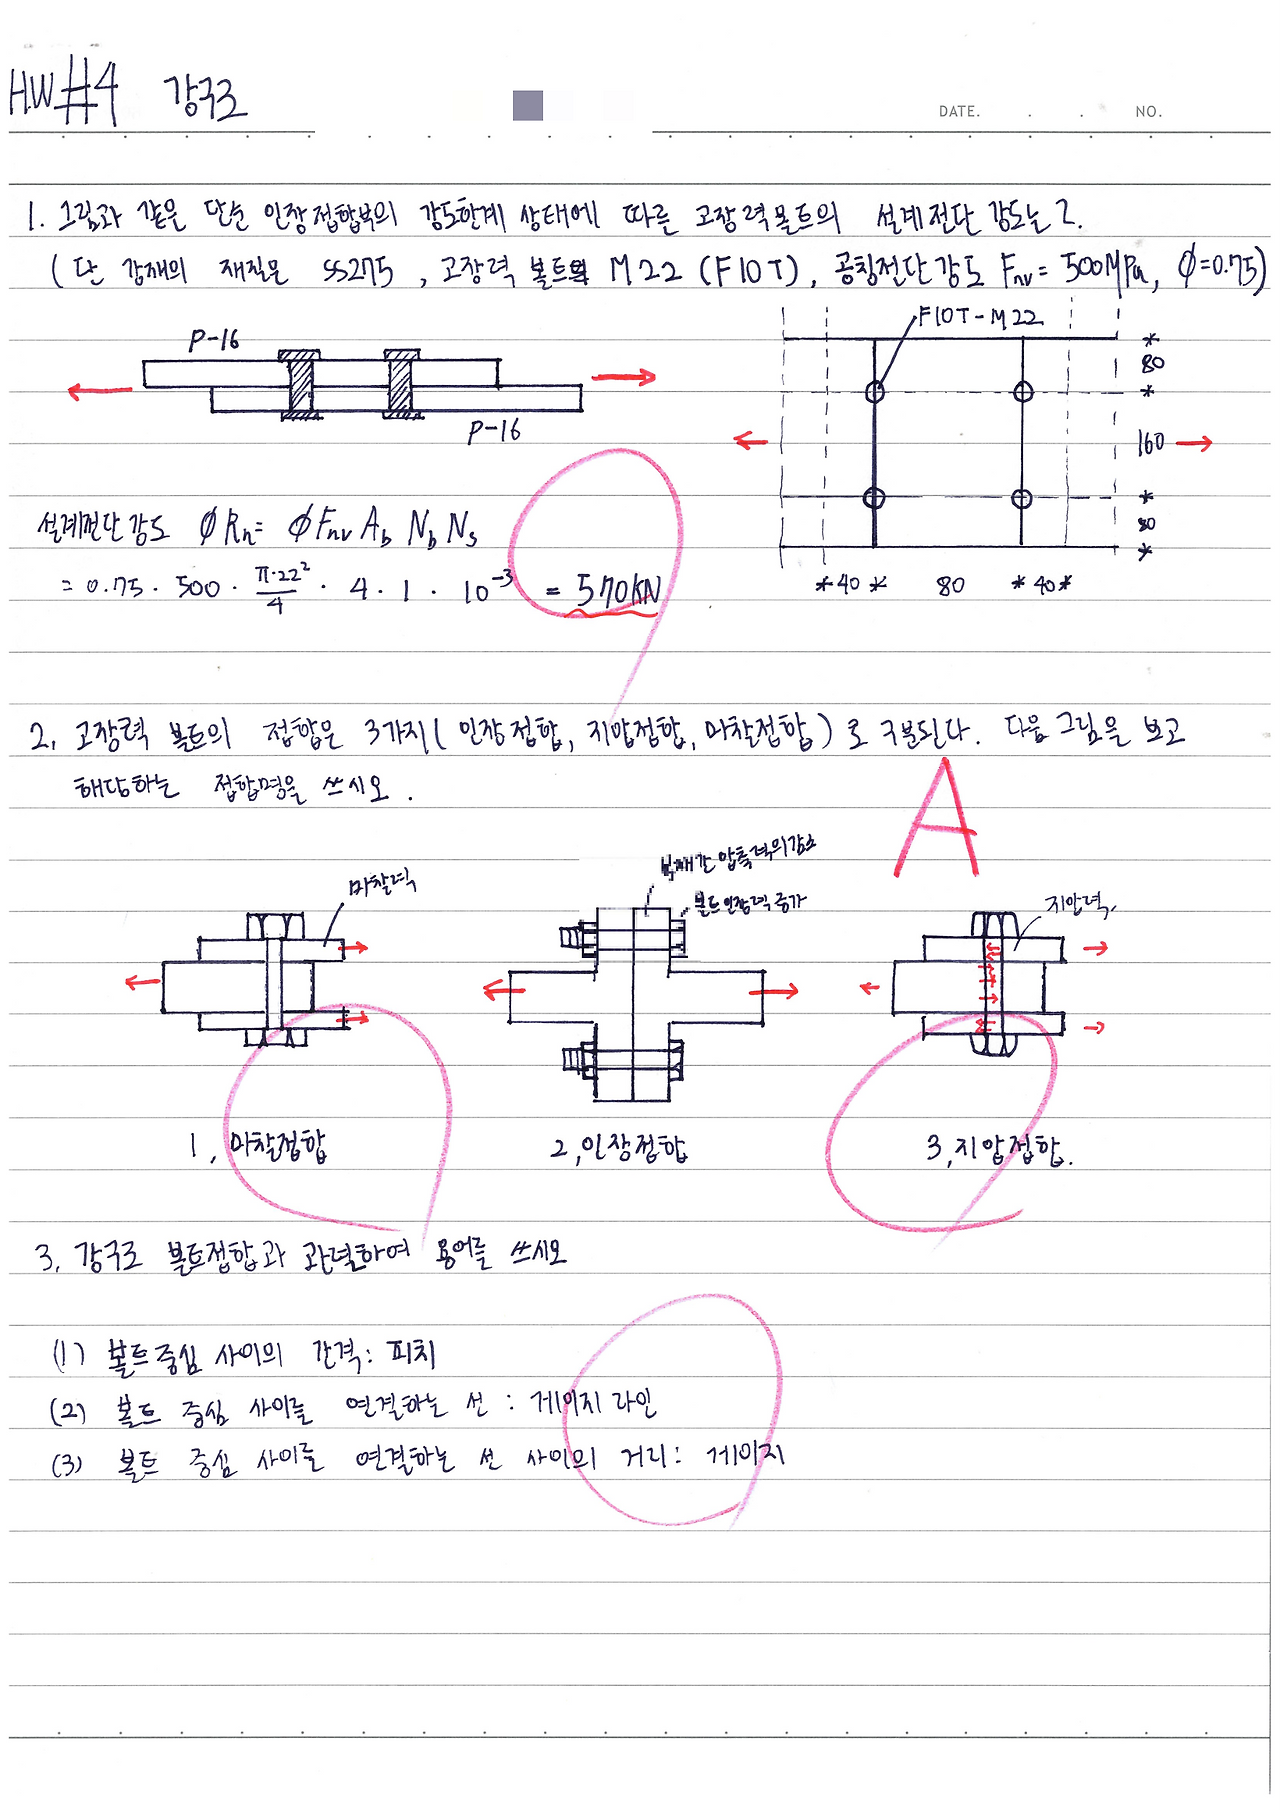 HW#4 강구조
DATE. . . NO.
1. 그림과 같은 단순 인장접합부의 강도한계 상태에 따른 고장력볼트의 설계전단 강도는?
(단 강재의 재질은 SS275, 고장력 볼트 M22 (F10T), 공칭전단강도 Fnv = 500MPa, Ø=0.75)
P-16
P-16
F10T-M22
80
160
80
*40* 80 *40*
설계전단강도 ØRn= ØFnv Ab Nb Ns
= 0.75 · 500 · π·22²/4 · 4 · 1 · 10⁻³ = 570KN
2. 고장력 볼트의 접합은 3가지( 인장접합, 지압접합, 마찰접합) 로 구분된다. 다음 그림을 보고
해당하는 접합명을 쓰시오.
A
마찰력
부재간 압축력의 감소
볼트 인장력 증가
지압력
1, 마찰접합
2, 인장접합
3, 지압접합.
3. 강구조 볼트접합과 관련하여 용어를 쓰시오
(1) 볼트중심 사이의 간격: 피치
(2) 볼트 중심 사이를 연결하는 선 : 게이지 라인
(3) 볼트 중심 사이를 연결하는 선 사이의 거리: 게이지